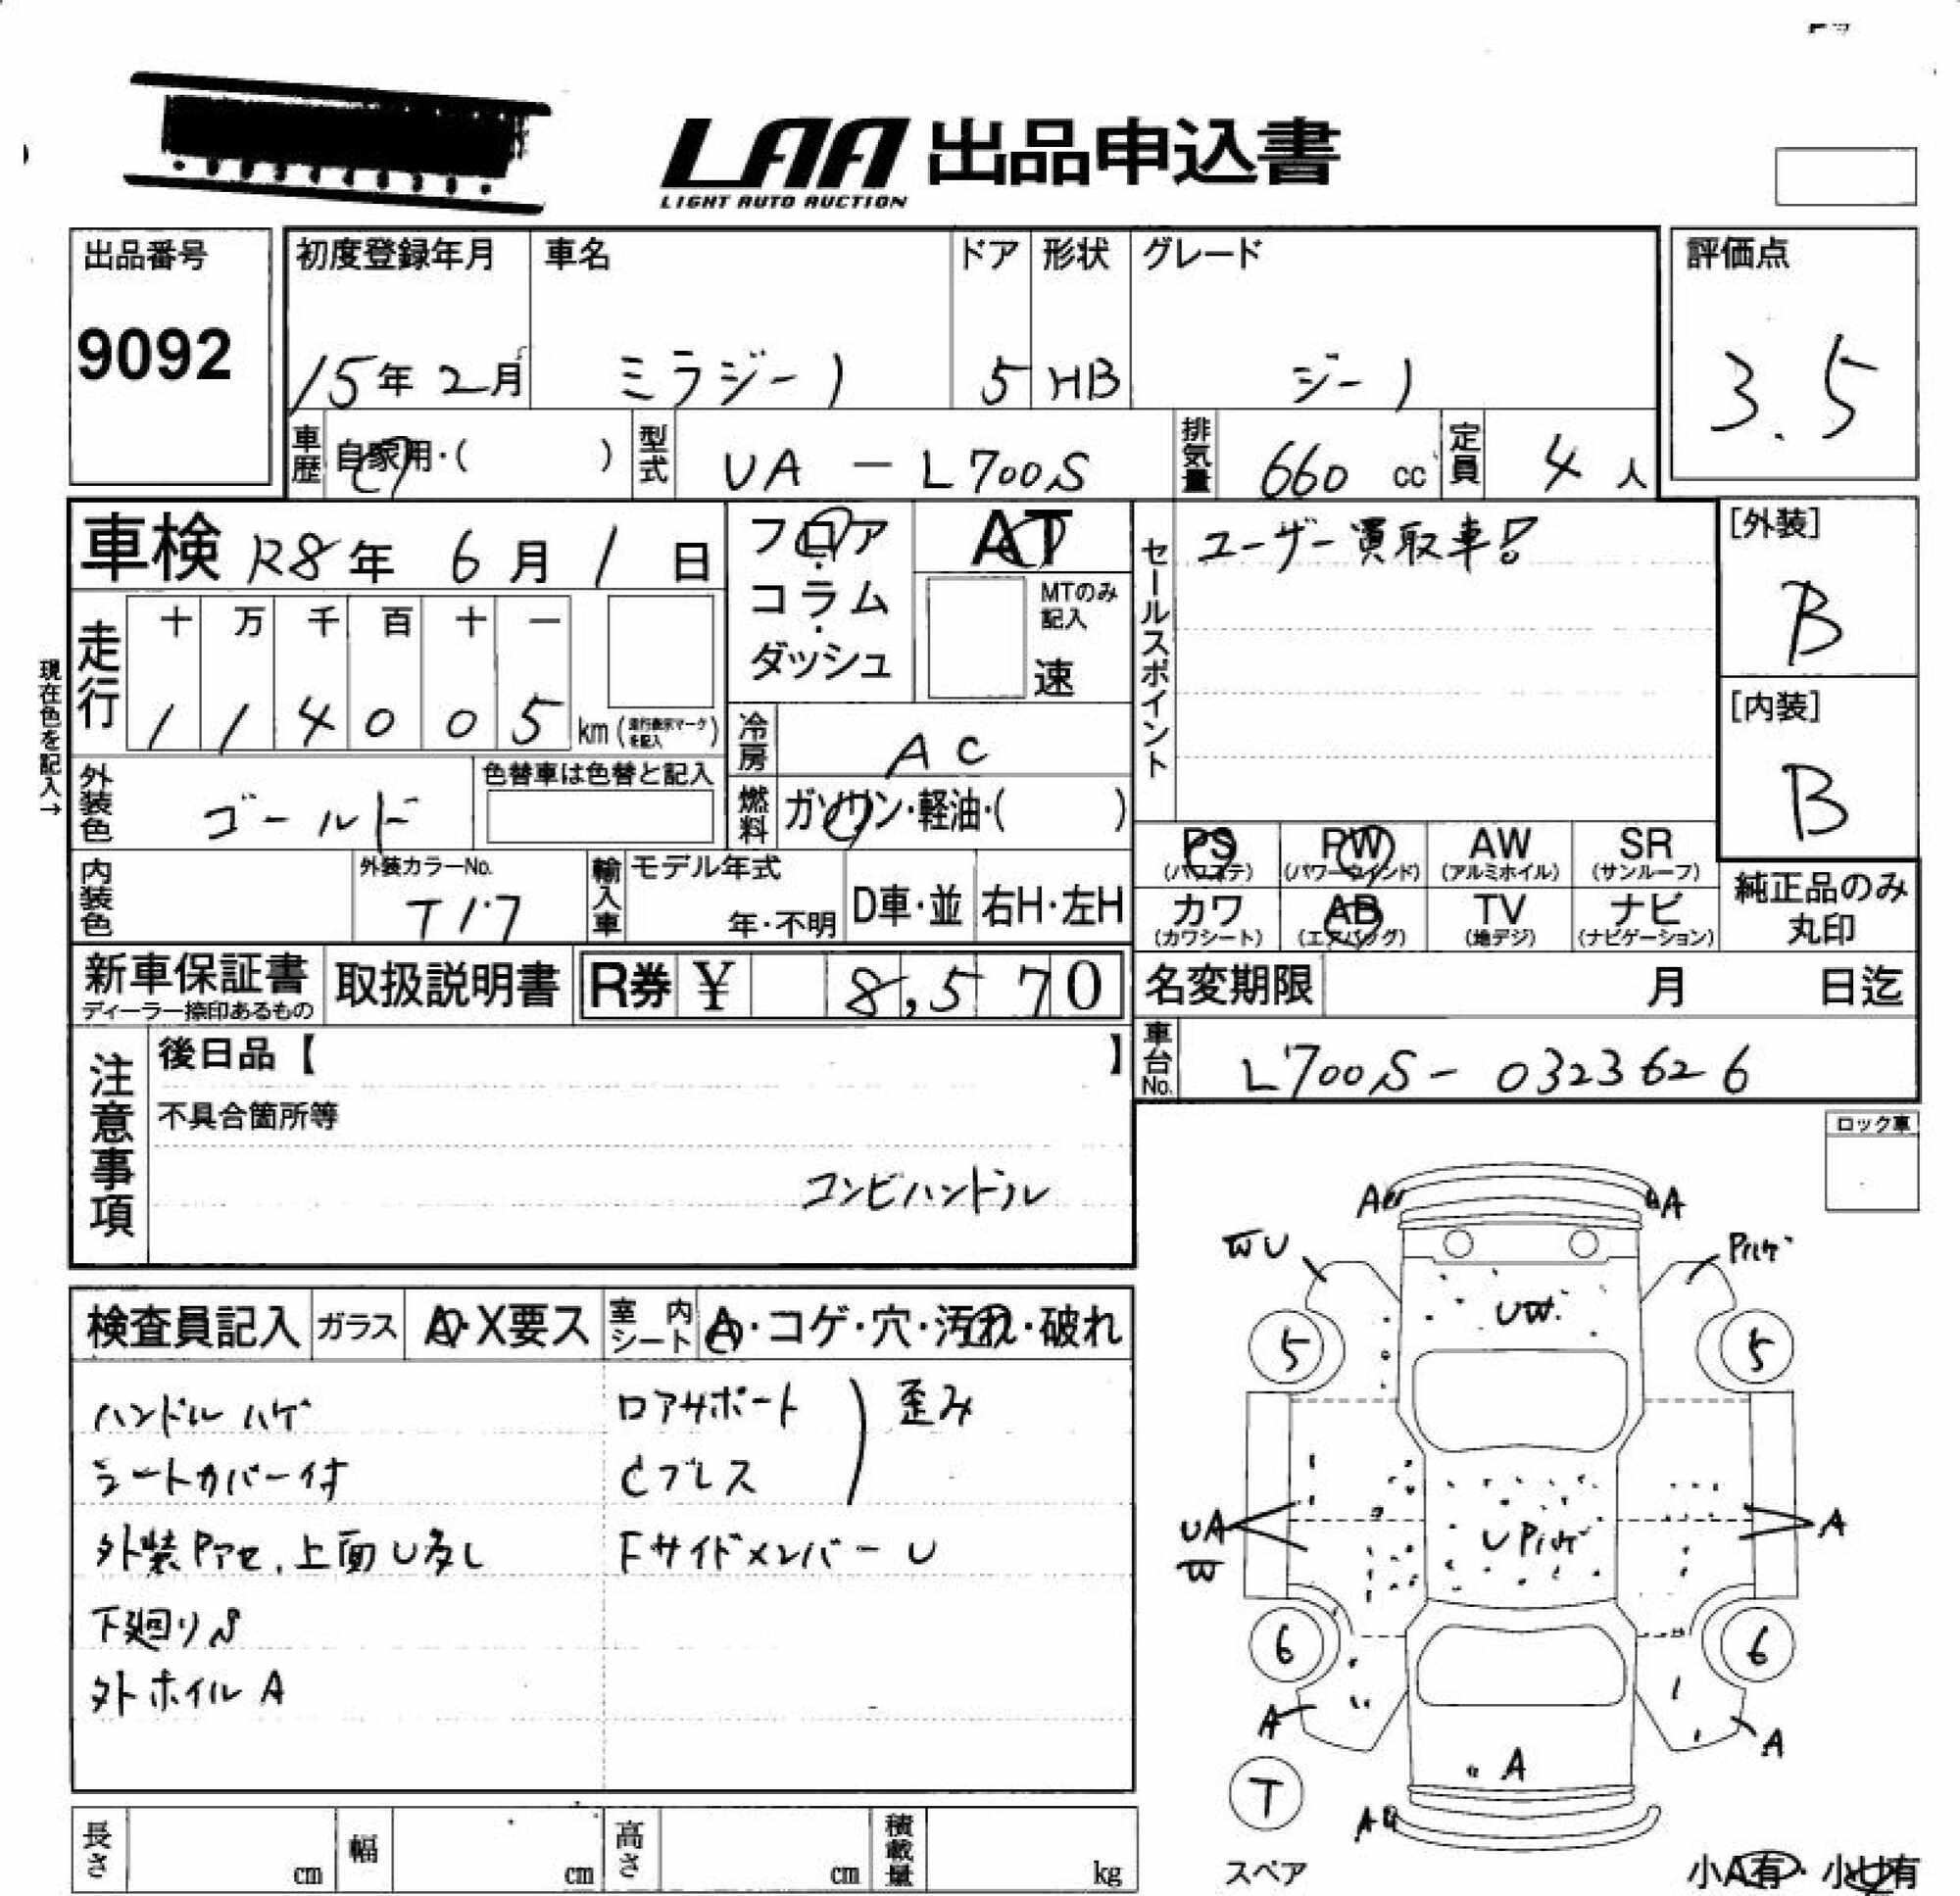 LAA 出品申込書
LIGHT AUTO AUCTION
出品番号
9092
初度登録年月 車名 ドア 形状 グレード
15年2月 ミラジーノ 5 HB ジーノ
評価点
3.5
車歴 自家用・( ) 型式 UA-L700S 排気量 660 cc 定員 4人
車検 R8年 6月 1日
フロア・コラム・ダッシュ
AT
MTのみ記入
速
セールスポイント
ユーザー買取車!
[外装]
B
[内装]
B
現在色を記入→
走行
十 万 千 百 十 一
1 1 4 0 0 5 km (走行表示マークを記入)
冷房 AC
外装色 ゴールド
色替車は色替と記入
燃料 ガソリン・軽油・( )
PS (パワステ) PW (パワーウインド) AW (アルミホイル) SR (サンルーフ)
内装色
外装カラーNo.
T17
輸入車 モデル年式
年・不明 D車・並 右H・左H
カワ (カワシート) AB (エアバッグ) TV (地デジ) ナビ (ナビゲーション)
純正品のみ
丸印
新車保証書
ディーラー捺印あるもの
取扱説明書 R券 ¥ 8,570
名変期限 月 日迄
注意事項
後日品【 】
車台No. L700S-0323626
不具合箇所等
コンビハンドル
ロック車
検査員記入 ガラス A・X要ス 室内シート A・コゲ・穴・汚れ・破れ
ハンドルハゲ
シートカバー付
外装Pアセ、上面U多し
下廻りS
外ホイルA
ロアサポート
Cブレス
歪み
FサイドメンバーU
A A
WU Pハゲ
UW
5 5
UA A
W
U Pハゲ
6 6
A A
A
T
A
スペア
小A有・小U有
長さ cm 幅 cm 高さ cm 積載量 kg